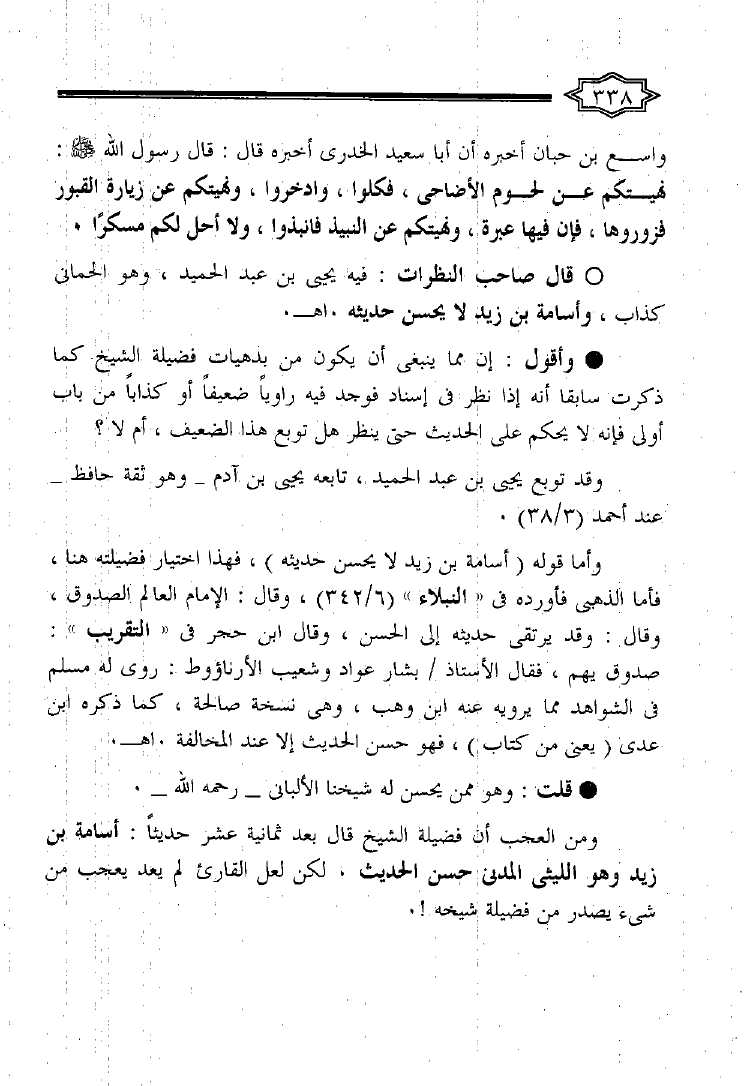 ٣٣٨
واسع بن حبان أخبره أن أبا سعيد الخدرى أخبره قال : قال رسول الله ﷺ :
نهيتكم عن لحوم الأضاحى ، فكلوا ، وادخروا ، ونهيتكم عن زيارة القبور
فزوروها ، فإن فيها عبرة ، ونهيتكم عن النبيذ فانبذوا ، ولا أحل لكم مسكرًا .
○ قال صاحب النظرات : فيه يحيى بن عبد الحميد ، وهو الحمانى
كذاب ، وأسامة بن زيد لا يحسن حديثه .اهـ.
● وأقول : إن مما ينبغى أن يكون من بدهيات فضيلة الشيخ كما
ذكرت سابقا أنه إذا نظر فى إسناد فوجد فيه راوياً ضعيفاً أو كذاباً من باب
أولى فإنه لا يحكم على الحديث حتى ينظر هل توبع هذا الضعيف ، أم لا ؟
وقد توبع يحيى بن عبد الحميد ، تابعه يحيى بن آدم _ وهو ثقة حافظ _
عند أحمد (٣٨/٣) .
وأما قوله ( أسامة بن زيد لا يحسن حديثه ) ، فهذا اختيار فضيلته هنا ،
فأما الذهبى فأورده فى « النبلاء » (٣٤٢/٦) ، وقال : الإمام العالم الصدوق ،
وقال : وقد يرتقى حديثه إلى الحسن ، وقال ابن حجر فى « التقريب » :
صدوق يهم ، فقال الأستاذ / بشار عواد وشعيب الأرناؤوط : روى له مسلم
فى الشواهد مما يرويه عنه ابن وهب ، وهى نسخة صالحة ، كما ذكره ابن
عدى ( يعنى من كتاب ) ، فهو حسن الحديث إلا عند المخالفة .اهـ.
● قلت : وهو ممن يحسن له شيخنا الألبانى _ رحمه الله _ .
ومن العجب أن فضيلة الشيخ قال بعد ثمانية عشر حديثاً : أسامة بن
زيد وهو الليثى المدنى حسن الحديث ، لكن لعل القارئ لم يعد يعجب من
شىء يصدر من فضيلة شيخه !.